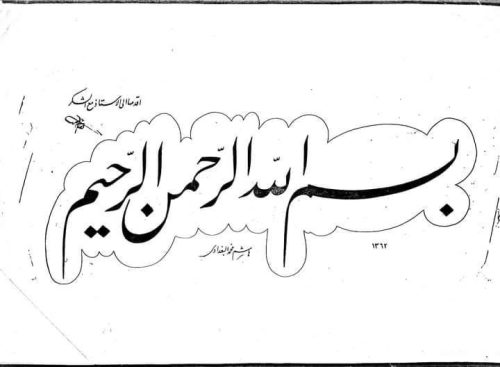 اقدمها الى الاستاذ مع الشكر
بسم الله الرحمن الرحيم
هاشم محمد البغدادي
١٣٦٢